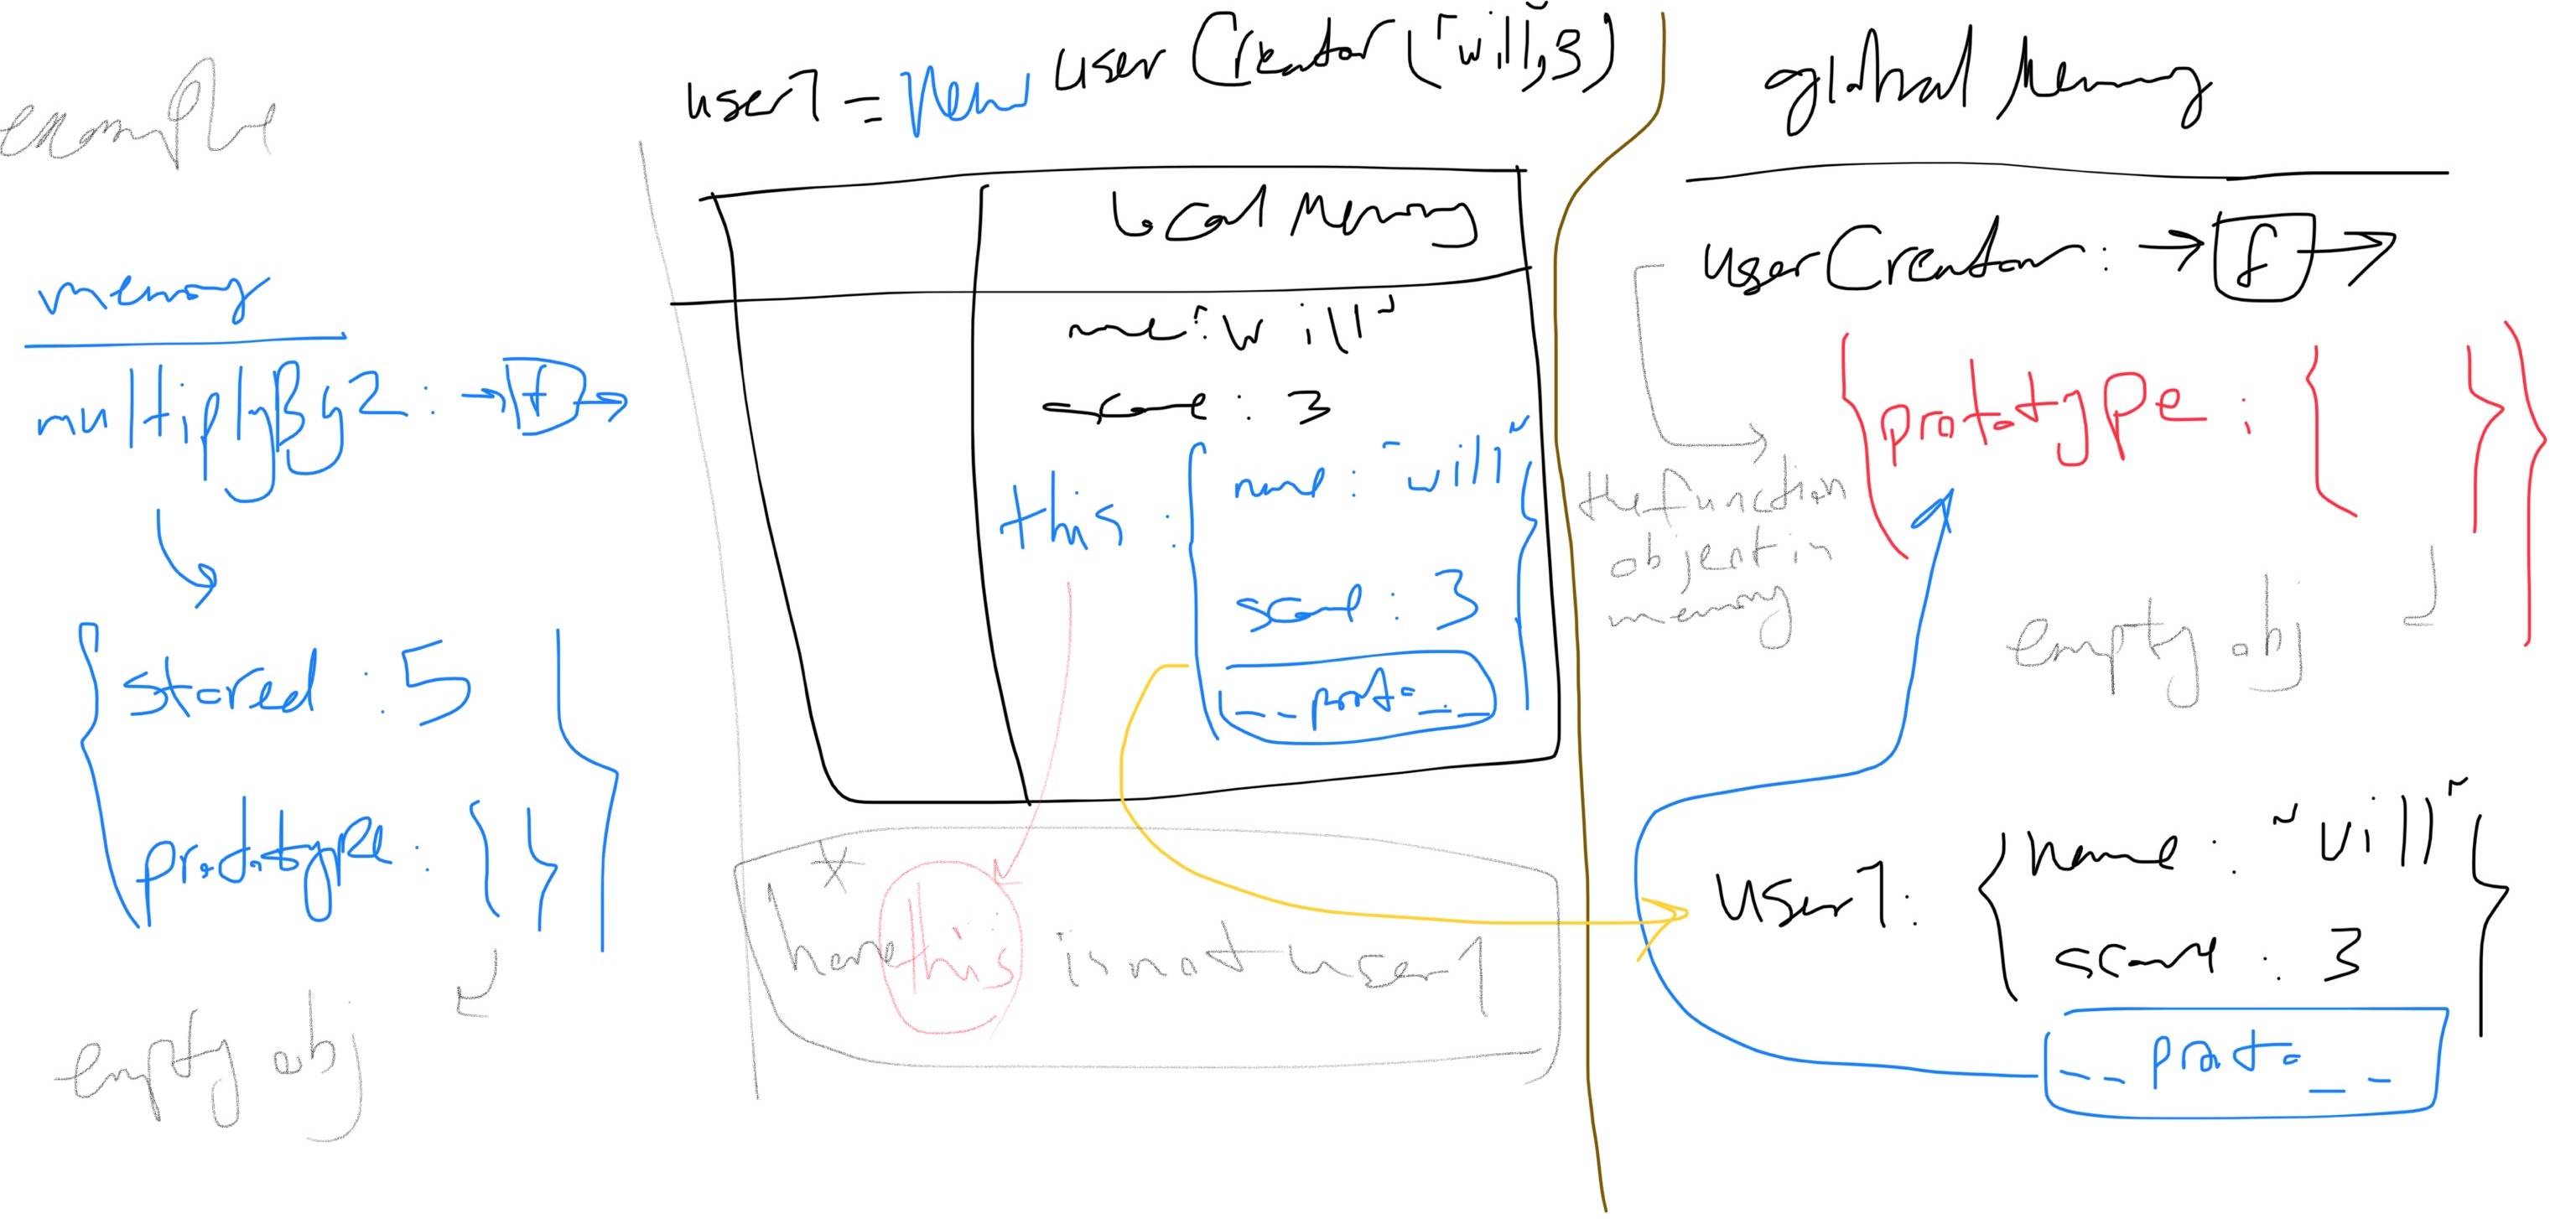 example
memory
multiplyBy2 : → f →
{ stored : 5
prototype : { } }
empty obj
user1 = New userCreator("will", 3)
Local Memory
name: "Will"
score : 3
this : { name : "will"
score : 3
__proto__ }
*
here this is not user1
global Memory
userCreator : → f →
{ prototype : { } }
the function
object in
memory
empty obj
user1 : { name : "will"
score : 3 }
__proto__